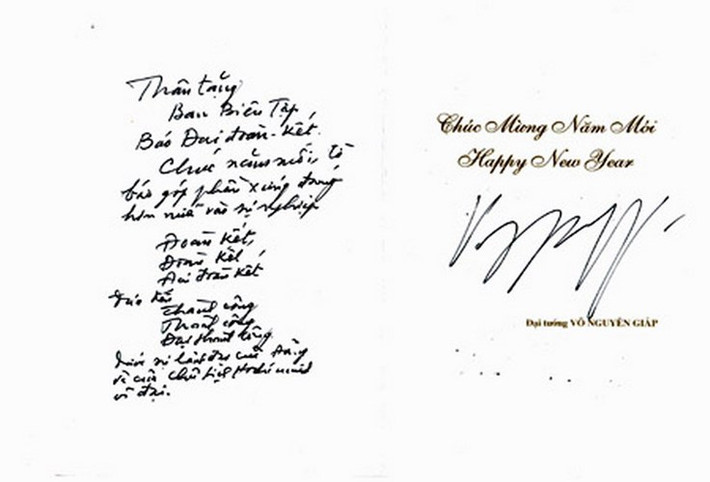 Thân tặng
Ban Biên Tập
Báo Đại đoàn-kết.
Chúc năm mới, tờ
báo góp phần xứng đáng
hơn nữa vào sự nghiệp
Đoàn kết,
Đoàn kết,
Đại đoàn kết
Thành công
Thành công
Đại thành công
dưới sự lãnh đạo của Đảng
và của Chủ tịch Hồ Chí Minh
vĩ đại.
Chúc Mừng Năm Mới
Happy New Year
Đại tướng VÕ NGUYÊN GIÁP